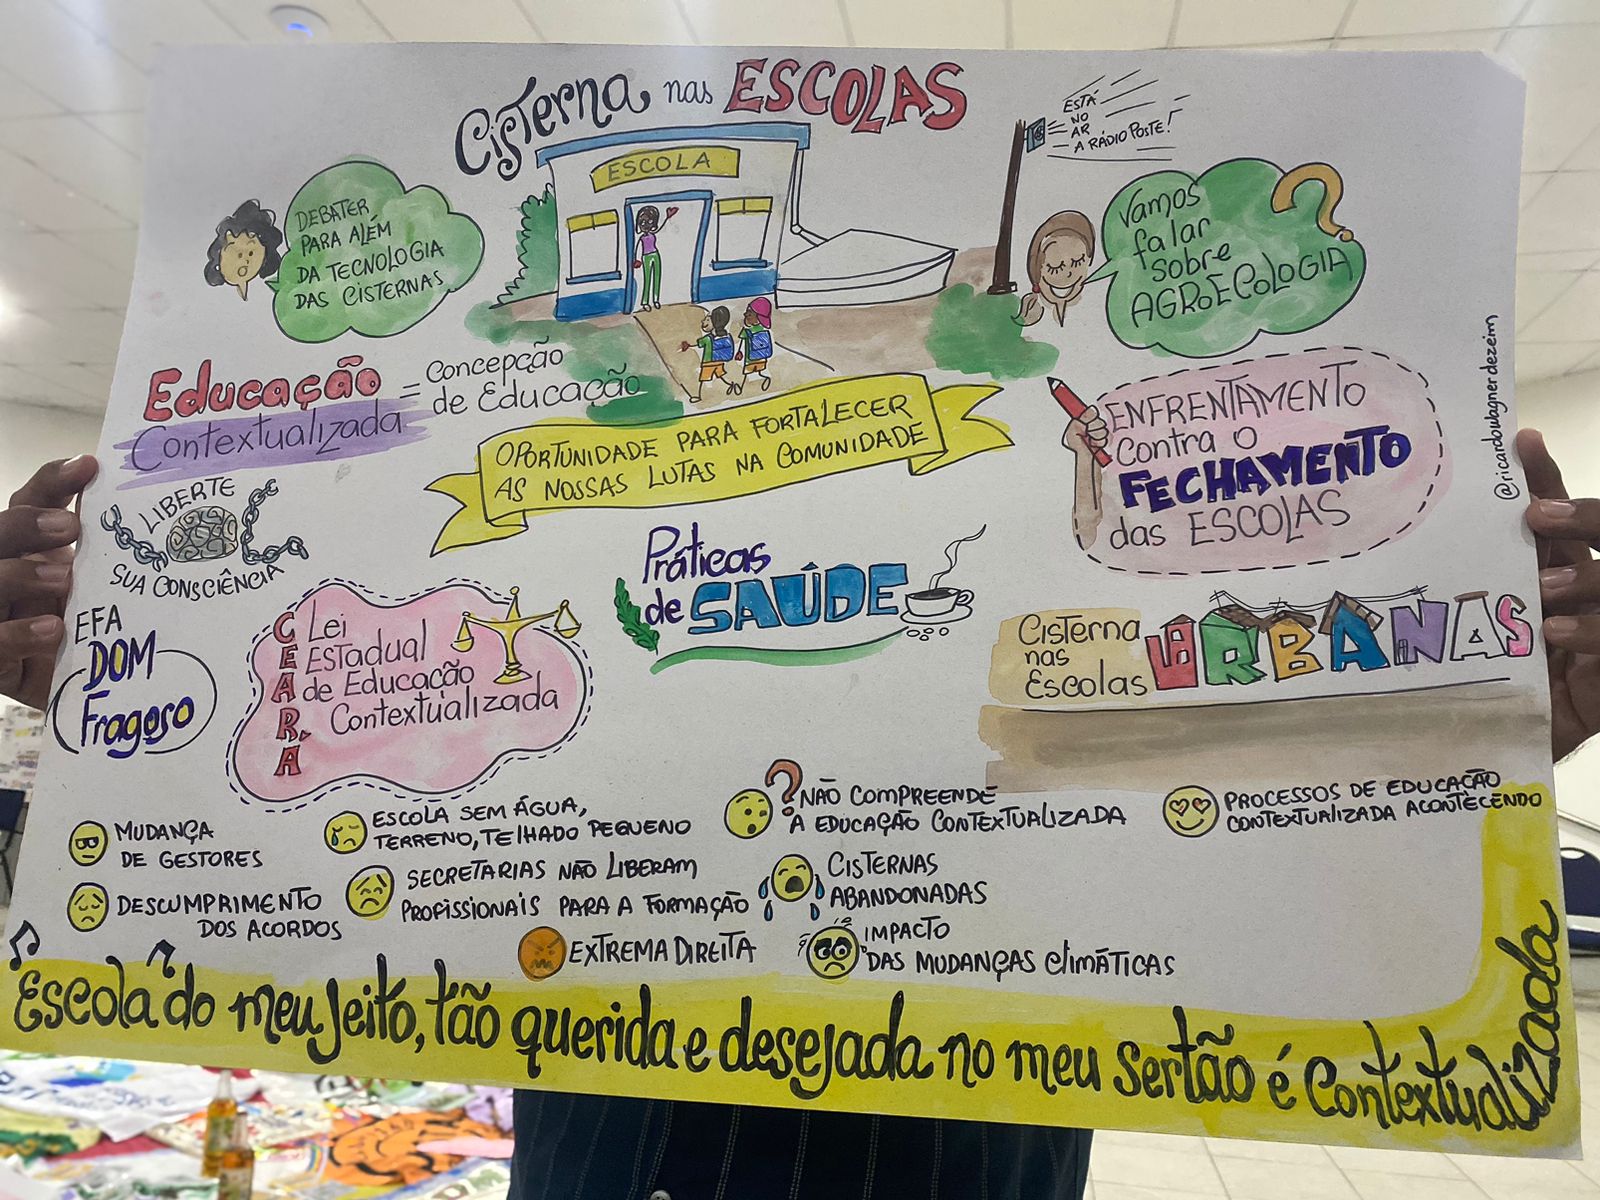 Cisterna nas ESCOLAS
ESCOLA
ESTÁ
NO
AR
A RÁDIO POSTE!
DEBATER
PARA ALÉM
DA TECNOLOGIA
DAS CISTERNAS
Vamos
falar
sobre
AGROECOLOGIA
?
Educação
Contextualizada
= Concepção
de Educação
OPORTUNIDADE PARA FORTALECER
AS NOSSAS LUTAS NA COMUNIDADE
ENFRENTAMENTO
contra o
FECHAMENTO
das ESCOLAS
@ricardowagnerdezem
LIBERTE
SUA CONSCIÊNCIA
EFA
DOM
Fragoso
CEARÁ
Lei
Estadual
de Educação
Contextualizada
Práticas
de SAÚDE
Cisterna
nas
Escolas
URBANAS
MUDANÇA
DE GESTORES
ESCOLA SEM ÁGUA,
TERRENO, TELHADO PEQUENO
?
NÃO COMPREENDE
A EDUCAÇÃO CONTEXTUALIZADA
PROCESSOS DE EDUCAÇÃO
CONTEXTUALIZADA ACONTECENDO
DESCUMPRIMENTO
DOS ACORDOS
SECRETARIAS NÃO LIBERAM
PROFISSIONAIS PARA A FORMAÇÃO
CISTERNAS
ABANDONADAS
EXTREMA DIREITA
IMPACTO
DAS MUDANÇAS CLIMÁTICAS
Escola do meu jeito, tão querida e desejada no meu sertão é Contextualizada